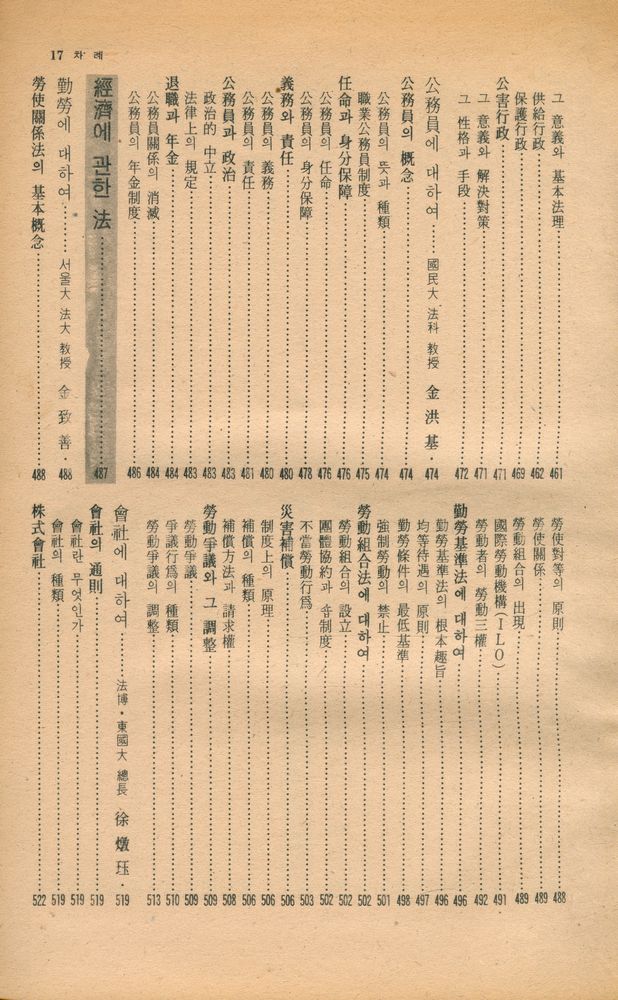 17 차 례
그 意義와 基本法理 461
供給行政 462
保護行政 469
公害行政 471
그 意義와 解決對策 471
그 性格과 手段 472
公務員에 대하여 國民大 法科 敎授 金洪基 · 474
公務員의 槪念 474
公務員의 뜻과 種類 474
職業公務員制度 475
任命과 身分保障 476
公務員의 任命 476
公務員의 身分保障 478
義務와 責任 480
公務員의 義務 480
公務員의 責任 481
公務員과 政治 483
政治的 中立 483
法律上의 規定 483
退職과 年金 484
公務員關係의 消滅 484
公務員의 年金制度 486
經濟에 관한 法 487
勤勞에 대하여 서울大 法大 敎授 金致善 · 488
勞使關係法의 基本槪念 488
勞使對等의 原則 488
勞使關係 489
勞動組合의 出現 489
國際勞動機構(ILO) 491
勞動者의 勞動三權 492
勤勞基準法에 대하여 496
勤勞基準法의 根本趣旨 496
均等待遇의 原則 497
勤勞條件의 最低基準 498
强制勞動의 禁止 501
勞動組合法에 대하여 502
勞動組合의 設立 502
團體協約과 各制度 502
不當勞動行爲 503
災害補償 506
制度上의 原理 506
補償의 種類 506
補償方法과 請求權 508
勞動爭議와 그 調整 509
勞動爭議 509
爭議行爲의 種類 510
勞動爭議의 調整 513
會社에 대하여 法博 · 東國大 總長 徐燉珏 · 519
會社의 通則 519
會社란 무엇인가 519
會社의 種類 519
株式會社 522